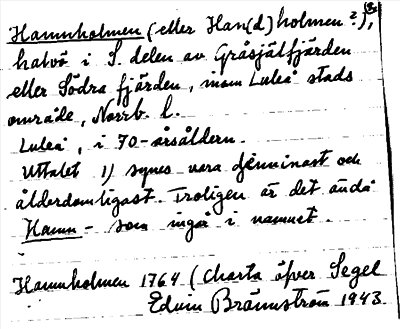 Hamnholmen (eller Han(d)holmen?),
halvö i S. delen av Gråsjälfjärden
eller Södra fjärden, inom Luleå stads
område, Norrb. l.
Luleå, i 70-årsåldern.
Uttalet 1) synes vara genuinast och
ålderdomligast. Troligen är det ändå
Hamn- som ingår i namnet.
Hamnholmen 1764 (Charta öfver Segel
Edvin Brännström 1943.